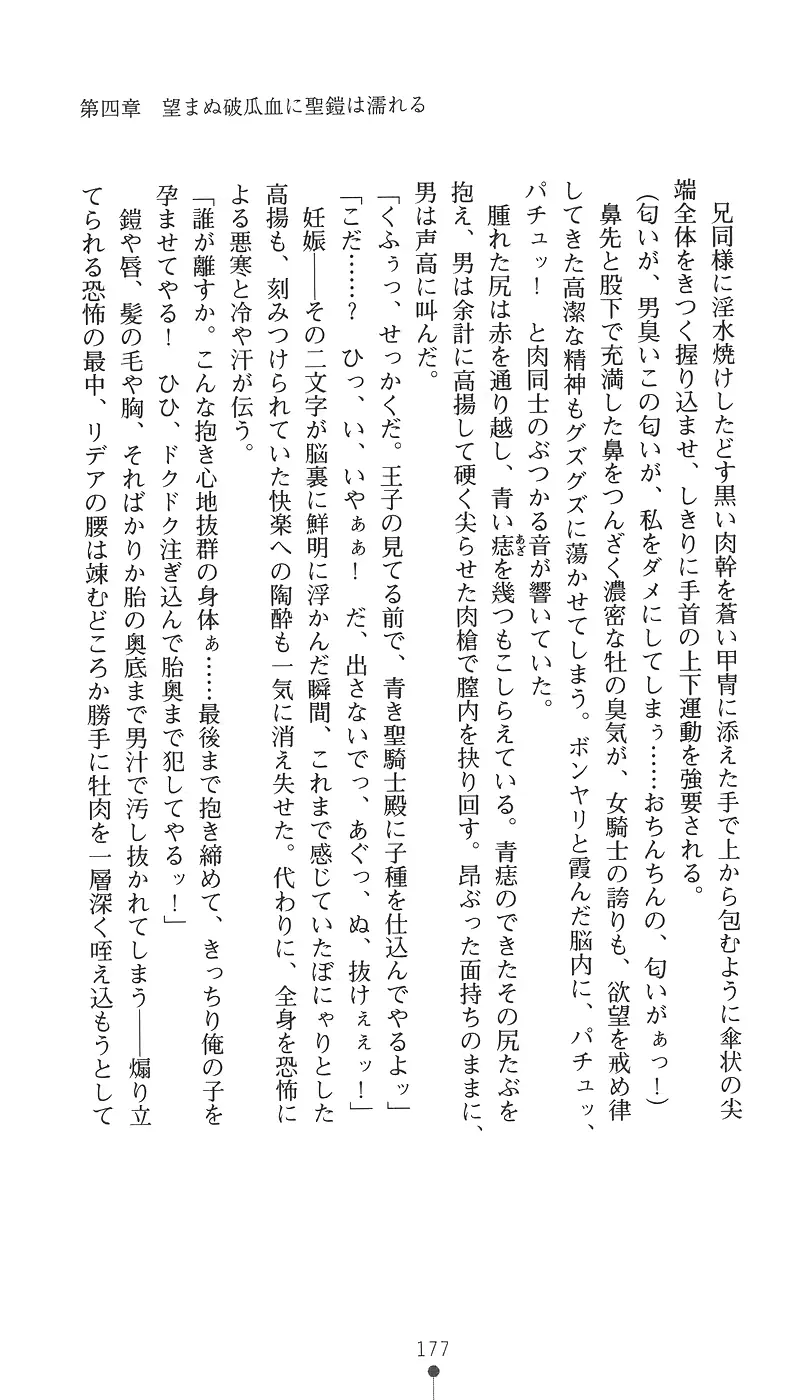 第四章　望まぬ破瓜血に聖鎧は濡れる
　兄同様に淫水焼けしたどす黒い肉幹を蒼い甲冑に添えた手で上から包むように傘状の尖
端全体をきつく握り込ませ、しきりに手首の上下運動を強要される。
（匂いが、男臭いこの匂いが、私をダメにしてしまぅ……おちんちんの、匂いがぁっ！）
　鼻先と股下で充満した鼻をつんざく濃密な牡の臭気が、女騎士の誇りも、欲望を戒め律
してきた高潔な精神もグズグズに蕩かせてしまう。ボンヤリと霞んだ脳内に、パチュッ、
パチュッ！　と肉同士のぶつかる音が響いていた。
　腫れた尻は赤を通り越し、青い痣を幾つもこしらえている。青痣のできたその尻たぶを
抱え、男は余計に高揚して硬く尖らせた肉槍で膣内を抉り回す。昂ぶった面持ちのままに、
男は声高に叫んだ。
「くふぅっ、せっかくだ。王子の見てる前で、青き聖騎士殿に子種を仕込んでやるよッ」
「こだ……？　ひっ、い、いやぁぁ！　だ、出さないでっ、あぐっ、ぬ、抜けぇぇッ！」
　妊娠――その二文字が脳裏に鮮明に浮かんだ瞬間、これまで感じていたぼにゃりとした
高揚も、刻みつけられていた快楽への陶酔も一気に消え失せた。代わりに、全身を恐怖に
よる悪寒と冷や汗が伝う。
「誰が離すか。こんな抱き心地抜群の身体ぁ……最後まで抱き締めて、きっちり俺の子を
孕ませてやる！　ひひ、ドクドク注ぎ込んで胎奥まで犯してやるッ！」
　鎧や唇、髪の毛や胸、そればかりか胎の奥底まで男汁で汚し抜かれてしまう――煽り立
てられる恐怖の最中、リデアの腰は竦むどころか勝手に牡肉を一層深く咥え込もうとして
177